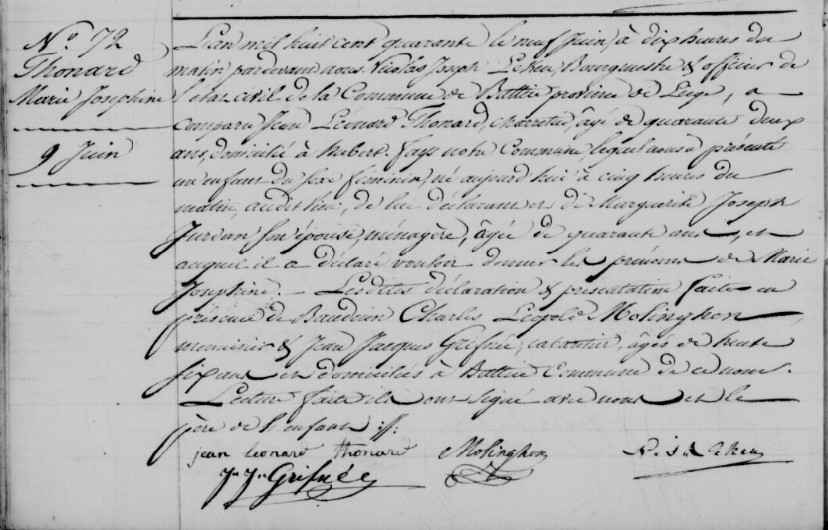 N.º 72
Thonard
Marie Josephine
9 Juin
L'an mil huit cent quarante le neuf Juin, à dix heures du
matin pardevant nous Nicolas Joseph Bourgmestre & officier de
l'état civil de la Commune de Battice province de Liége, a
comparu Jean Léonard Thonard, charretier, âgé de quarante deux
ans, domicilié à notre Commune, lequel nous a présenté
un enfant du sexe féminin, né aujourd'hui à cinq heures du
matin, audit lieu, de lui déclarant et de Marguerite Joseph
Jurdan son épouse, ménagère, âgée de quarante ans, et
auquel il a déclaré vouloir donner les prénoms de Marie
Josephine. Lesdites déclaration & présentation faites en
présence de Baudouin Charles Léopold Molinghen,
menuisier & Jean Jacques Grifnée, cabaretier, âgés de trente
six ans et domiciliés à Battice Commune de ce nom.
Lecture faite ils ont signé avec nous et le
père de l'enfant
jean leonard thonard Molinghen
Jn Jq Grifnée